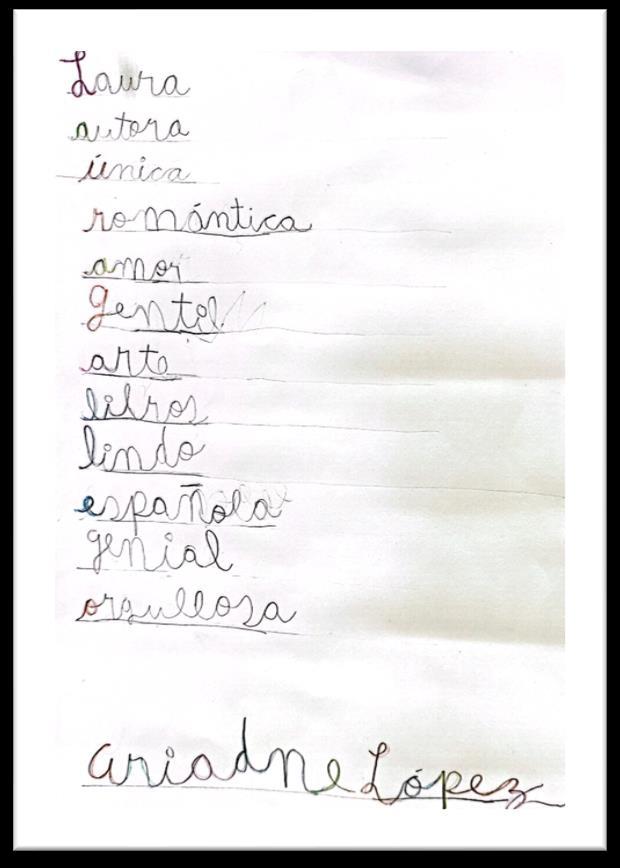 Laura
autora
única
romántica
amor
gentil
arte
libros
lindo
española
genial
orgullosa
ariadne López